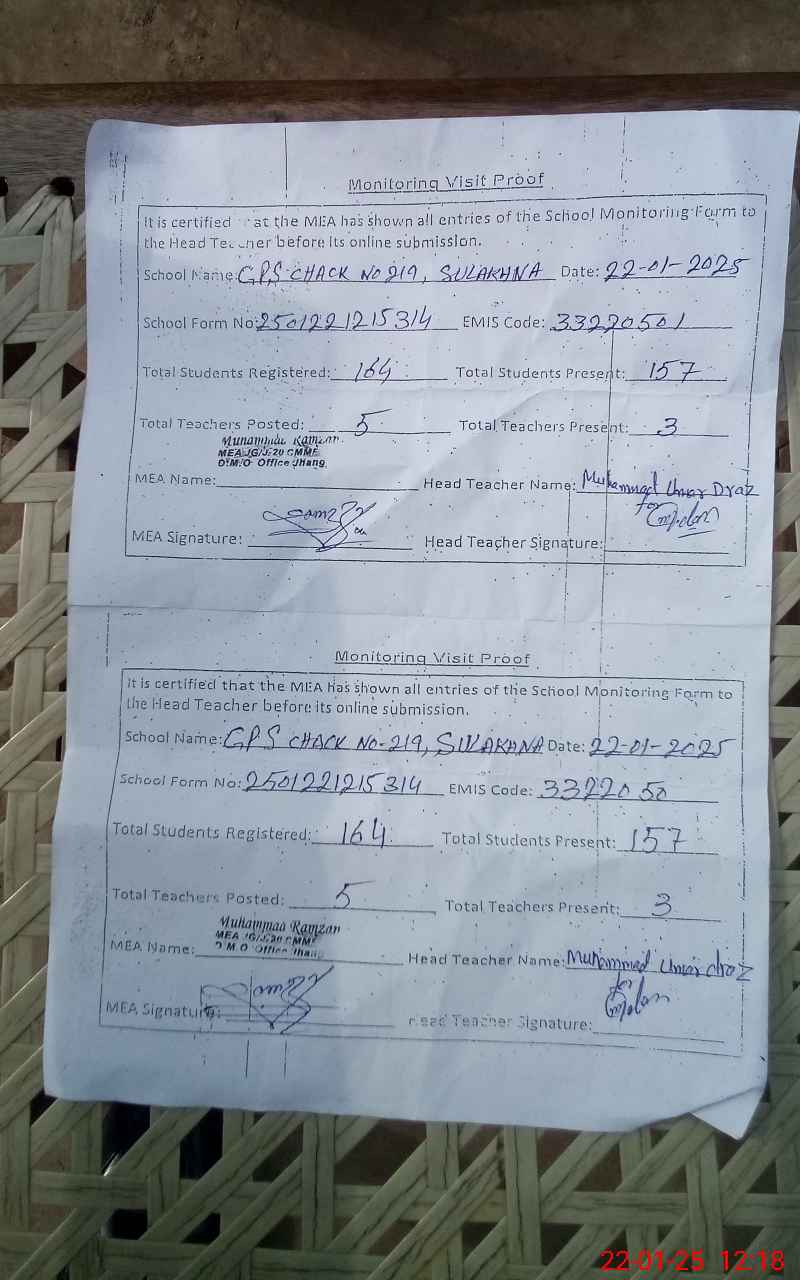 Monitoring Visit Proof
It is certified at the MEA has shown all entries of the School Monitoring Form to
the Head Teacher before its online submission.
School Name: GPS CHACK NO 219, SULAKHNA Date: 22-01-2025
School Form No: 2501221215314 EMIS Code: 33220501
Total Students Registered: 164 Total Students Present: 157
Total Teachers Posted: 5 Total Teachers Present: 3
Muhammad Ramzan
MEA JG/J.20 CMMF
D.M.O Office Jhang
MEA Name: Head Teacher Name: Muhammad Umar Draz
for
MEA Signature: Head Teacher Signature:
Monitoring Visit Proof
It is certified that the MEA has shown all entries of the School Monitoring Form to
the Head Teacher before its online submission.
School Name: GPS CHACK NO-219, SULAKHNA Date: 22-01-2025
School Form No: 2501221215314 EMIS Code: 3322050
Total Students Registered: 164 Total Students Present: 157
Total Teachers Posted: 5 Total Teachers Present: 3
Muhammad Ramzan
MEA JG/J.20 CMMF
D.M.O Office Jhang
MEA Name: Head Teacher Name: Muhammad Umar draz
for
MEA Signature: Head Teacher Signature:
22-01-25 12:18